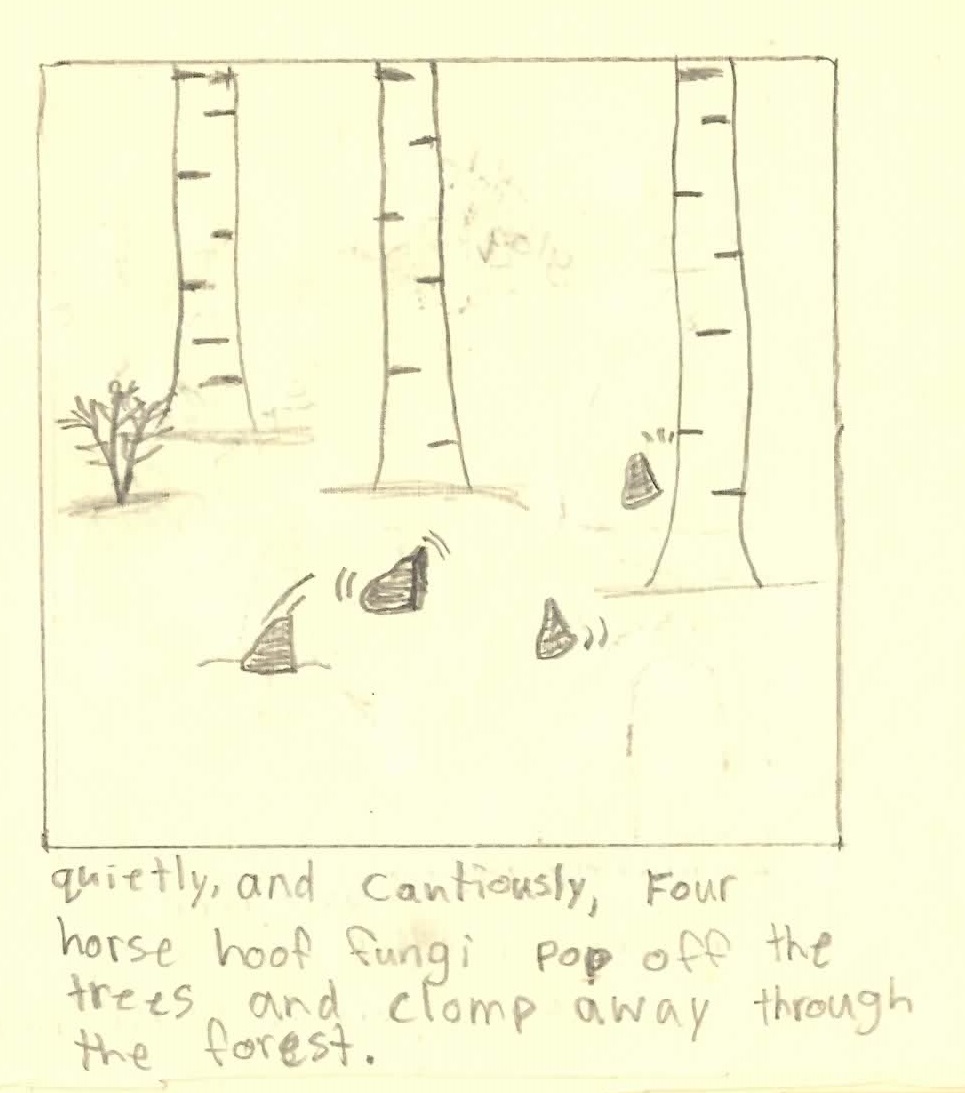 quietly, and cantiously, Four
horse hoof fungi pop off the
trees and clomp away through
the forest.